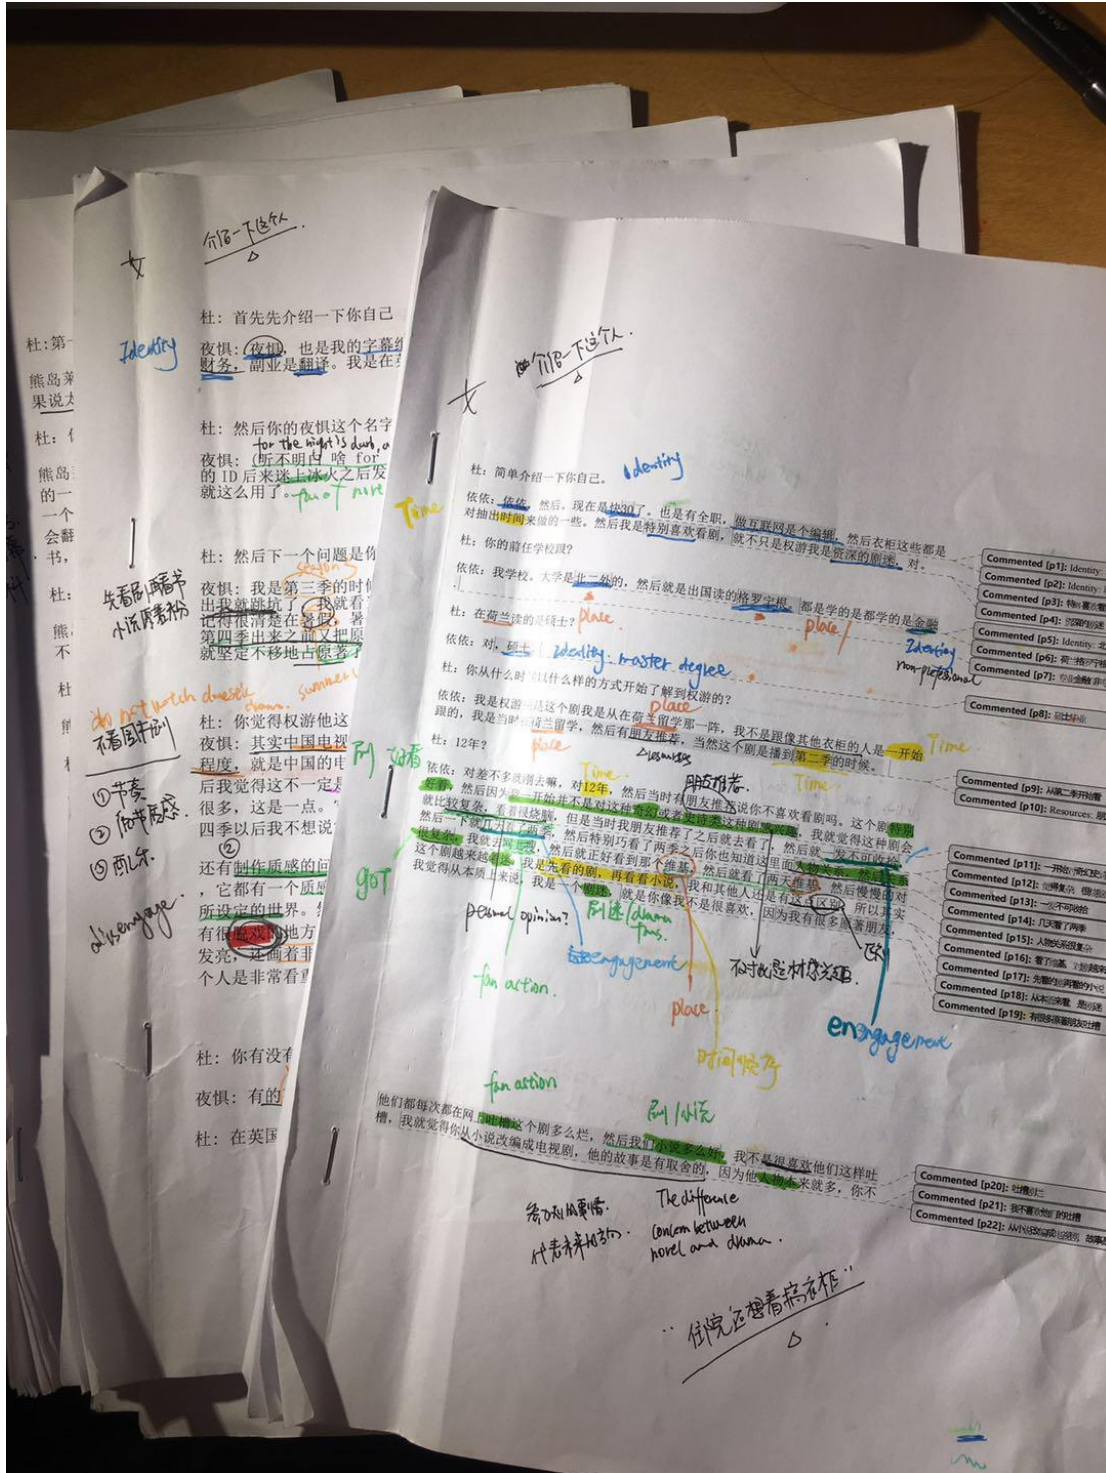 介绍一下这个人.
女
杜: 首先先介绍一下你自己
Identity
夜惧: 夜惧, 也是我的字幕组
财务, 副业是翻译。我是在英
杜: 然后你的夜惧这个名字
for the night is dark, a
夜惧: (听不明白 啥 for
的 ID 后来迷上冰火之后发
就这么用了。
fan of nove
杜: 然后下一个问题是你
season 3
夜惧: 我是第三季的时候
出我就跳坑了, 我就看
记得很清楚在暑假, 暑
第四季出来之前又把原
就坚定不移地占原著了
summer
先看剧再看书
小说原著粉
do not watch domestic
drama.
不看国产剧
杜: 你觉得权游他这
夜惧: 其实中国电视
程度, 就是中国的电
后我觉得这不一定是
很多, 这是一点。
四季以后我不想说
①节奏
②
③
②
还有制作质感的问
, 它都有一个质感
所设定的世界。
有很脱戏的地方
发亮, 还画着非
个人是非常看重
disengage.
杜: 你有没有
夜惧: 有的
杜: 在英国
杜:第一
熊岛莱
果说太
杜:
熊岛
的一
一个
会翻
书,
杜:
熊
不
杜
介绍一下这个人.
女
杜: 简单介绍一下你自己。
Identity
Time
依依: 依依, 然后, 现在是快30了。也是有全职, 做互联网是个编辑, 然后衣柜这些都是
对抽出时间来做的一些。然后我是特别喜欢看剧, 就不只是权游我是资深的剧迷, 对。
杜: 你的前任学校跟?
依依: 我学校, 大学是北二外的, 然后就是出国读的格罗宁根, 都是学的是都学的是金融
place
place
Identity
non-professional
杜: 在荷兰读的是硕士?
依依: 对, 硕士
Identity: master degree
杜: 你从什么时候以什么样的方式开始了解到权游的?
place
依依: 我是权游这个剧我是从在荷兰留学那一阵, 我不是跟像其他衣柜的人是一开始
跟的, 我是当时在荷兰留学, 然后有朋友推荐, 当然这个剧是播到第二季的时候。
Time
place
Time
杜: 12年?
Time.
朋友推荐.
剧 好看
依依: 对差不多就刚去嘛, 对12年, 然后当时有朋友推荐说你不喜欢看剧吗。这个剧特别
好看, 然后因为我一开始并不是对这种奇幻或者史诗类这种剧感兴趣, 我就觉得这种剧会
就比较复杂, 看着很烧脑, 但是当时我朋友推荐了之后就去看了, 然后就一发不可收拾
然后一下就几天看了两季, 然后特别巧看了两季之后你也知道这里面人物关系, 然后关系
很复杂, 我就去网上搜, 然后就正好看到那个维基, 然后就看了两天维基, 然后慢慢的对
这个剧越来越着迷, 我是先看的剧, 再看看小说, 我和其他人还是有这点区别, 所以其实
我觉得从本质上来说, 我是一个剧迷, 就是你像我不是很喜欢, 因为我有很多原著朋友,
got
personal opinion?
剧迷/drama
fans.
engagement
fan action.
place
时间顺序
engagement
fan action
剧/小说
他们都每次都在网上吐槽这个剧多么烂, 然后我们小说多么好, 我不是很喜欢他们这样吐
槽, 我就觉得你从小说改编成电视剧, 他的故事是有取舍的, 因为他人物本来就多, 你不
代表未来的方向.
The difference
concern between
novel and drama.
"住院还想着搞衣柜"
Commented [p1]: Identity:
Commented [p2]: Identity:
Commented [p3]: 特别喜欢看
Commented [p4]: 资深的剧迷
Commented [p5]: Identity: 北
Commented [p6]: 荷兰格罗宁根
Commented [p7]: 专业金融
Commented [p8]: 硕士毕业
Commented [p9]: 从第二季开始看
Commented [p10]: Resources: 朋
Commented [p11]:
Commented [p12]:
Commented [p13]: 一发不可收拾
Commented [p14]: 几天看了两季
Commented [p15]: 人物关系很复杂
Commented [p16]:
Commented [p17]: 先看的剧再看的小说
Commented [p18]:
Commented [p19]: 有很多原著朋友吐槽
Commented [p20]:
Commented [p21]:
Commented [p22]: